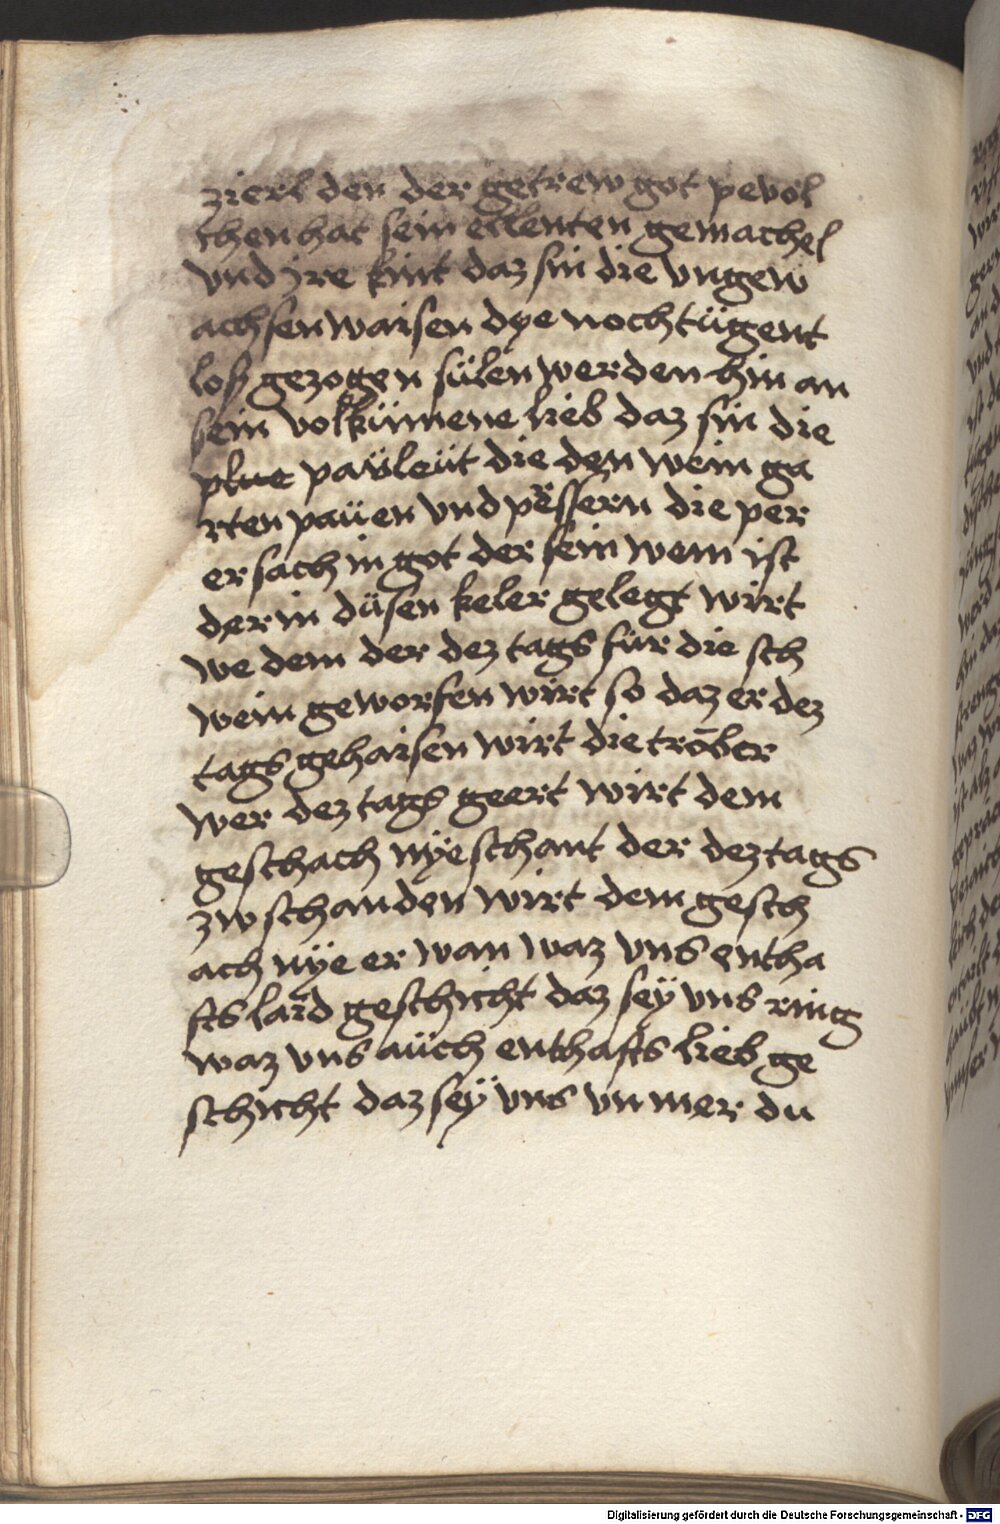 zierl den der getrew got pevol
chen hat sein ellenten gemachel
vnd jre kint daz sin die vngew
achsen waisen dye noch tügent
loß gezogen sülen werden hin an
sein volkümene lieb daz sin die
plue paüleüt die den wein ga
rten paüen vnd pessern die per
er sach in got der sein wein ist
der in düsen keler gelegt wirt
we dem der dez tags für die sch
wein geworfen wirt so daz er dez
tags gehaisen wirt die tröber
wer dez tags geert wirt dem
geschach nÿe schant der dez tags
zw schanden wirt dem gesch
ach nÿe er wan waz vns entha
fts laid geschicht daz seÿ vns ring
waz vns aüch enthafts lieb ge
schicht daz seÿ vns vnmer du
Digitalisierung gefördert durch die Deutsche Forschungsgemeinschaft - DFG